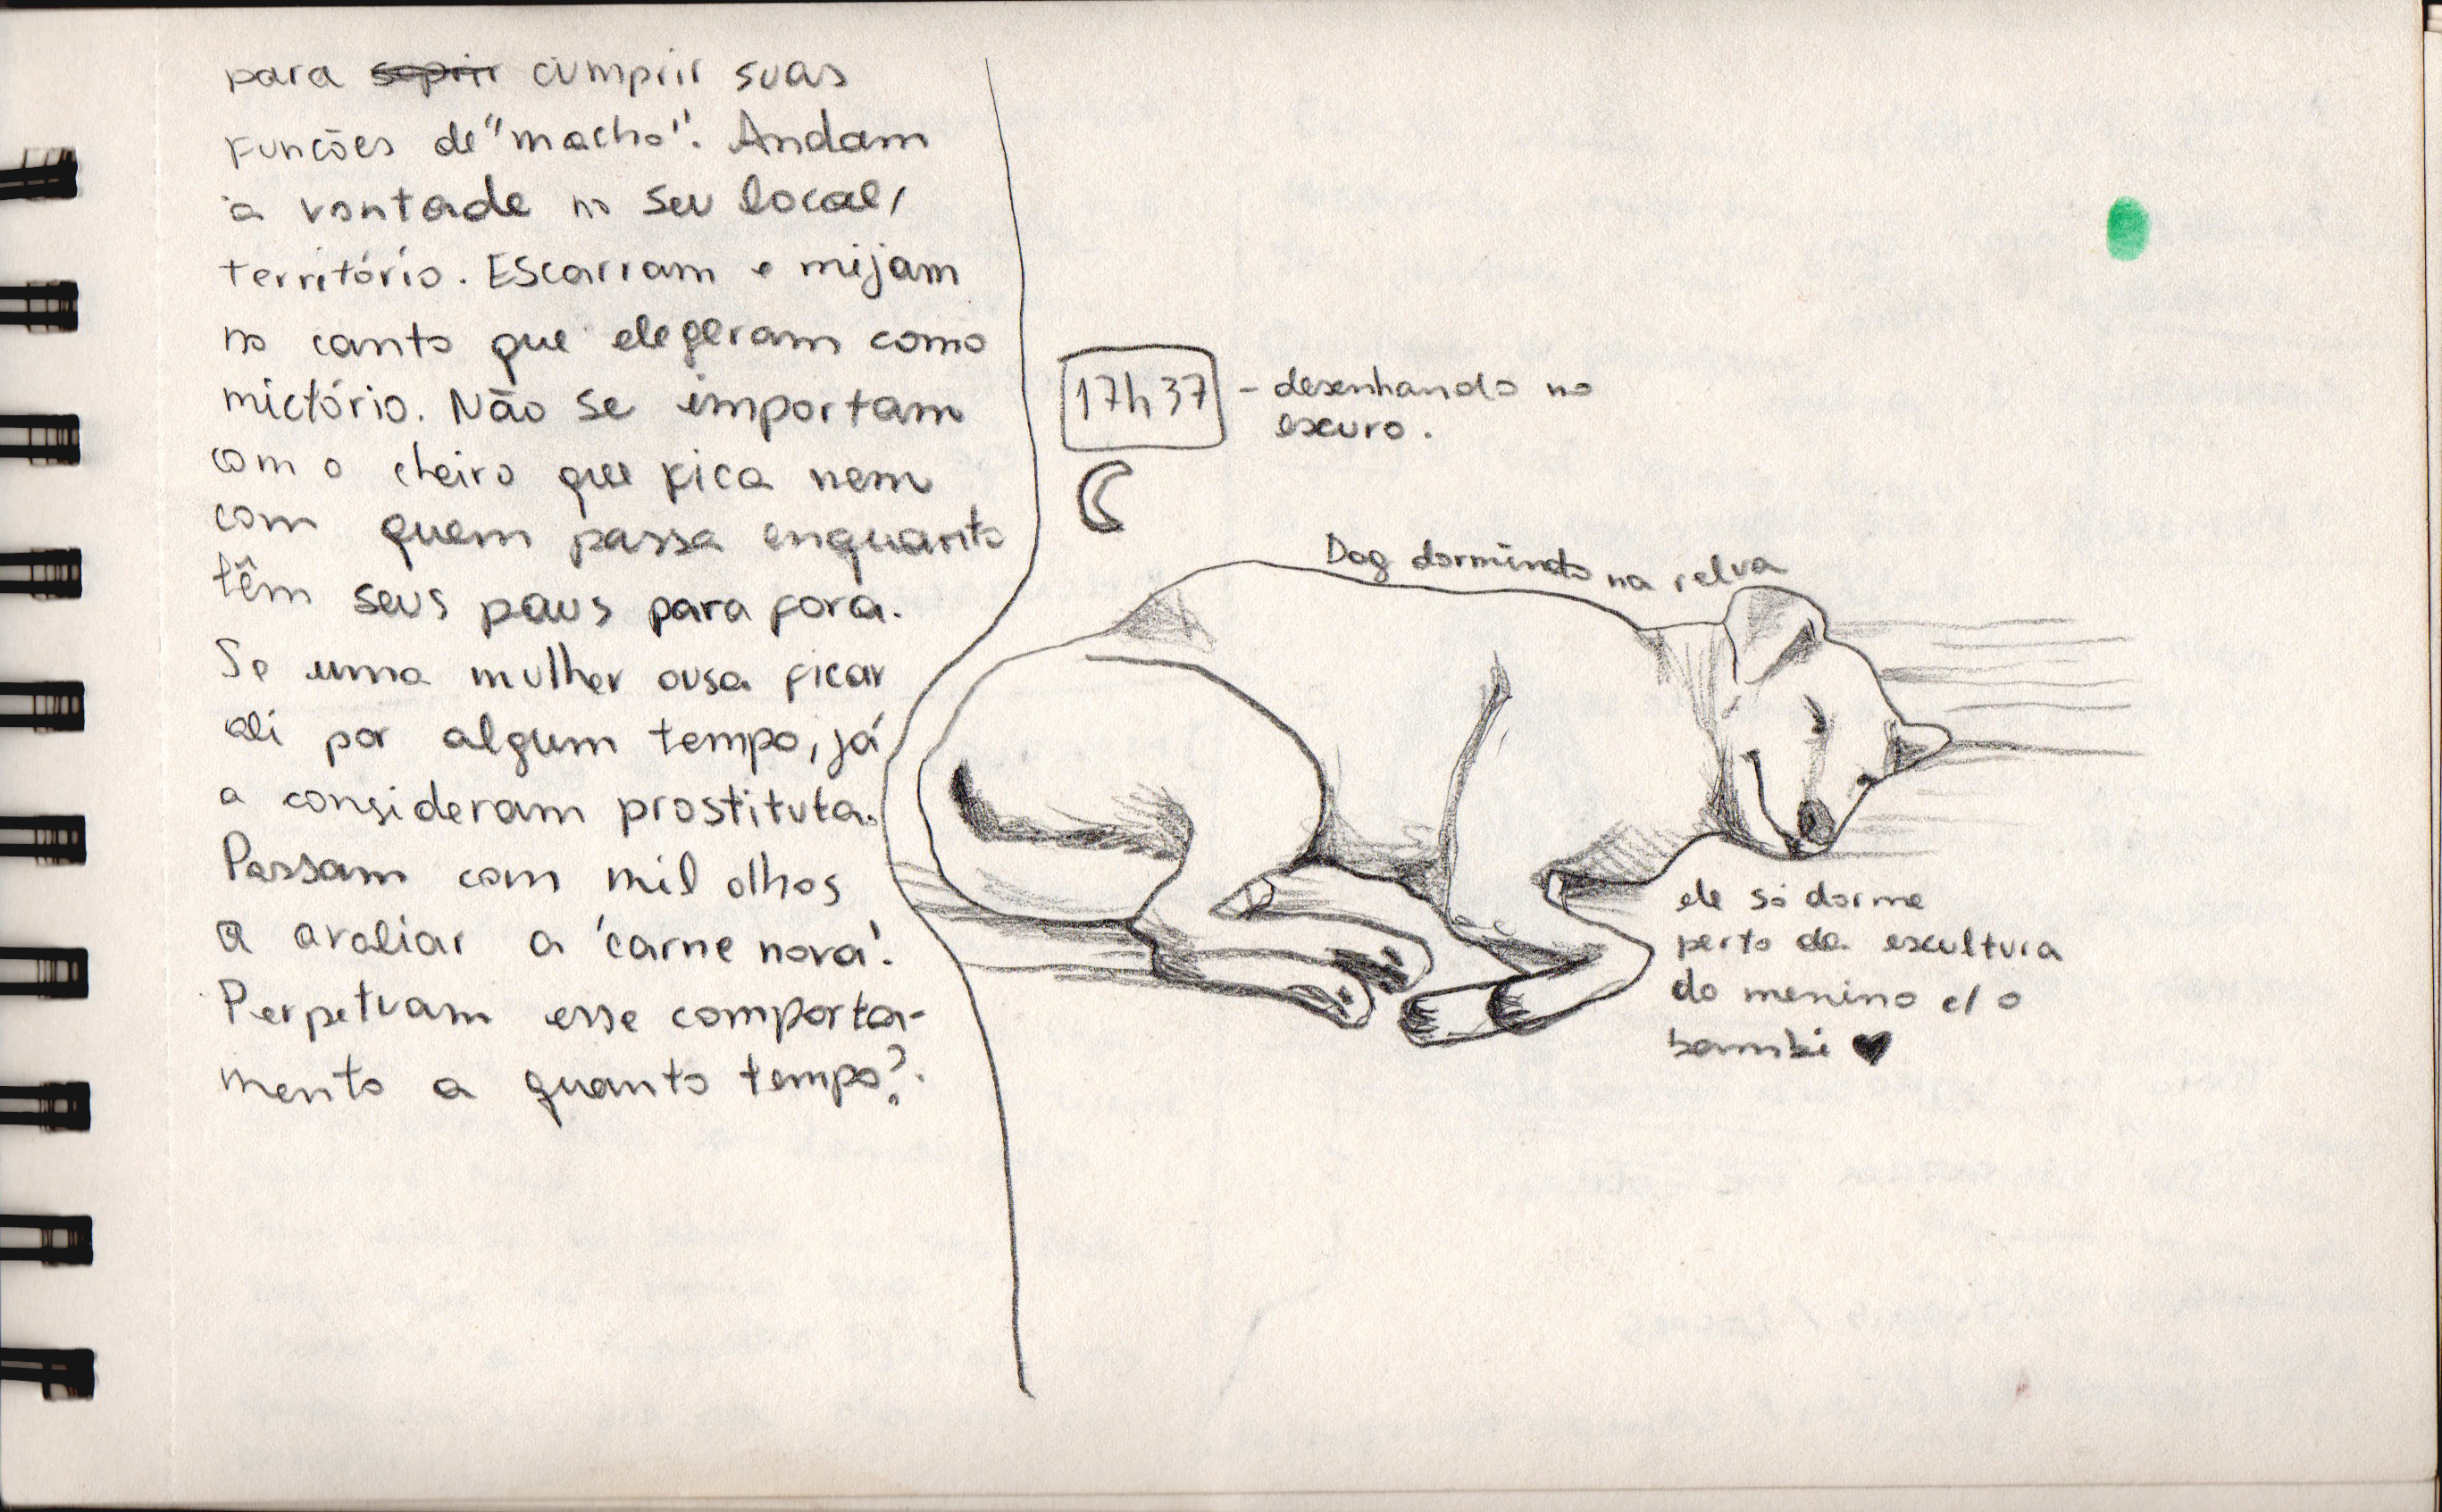 para suprir cumprir suas
funções de "macho". Andam
à vontade no seu local/
território. Escarram e mijam
no canto que elegeram como
mictório. Não se importam
com o cheiro que fica nem
com quem passa enquanto
têm seus paus para fora.
Se uma mulher ousa ficar
ali por algum tempo, já
a consideram prostituta.
Passam com mil olhos
a avaliar a 'carne nova'.
Perpetuam esse comporta-
mento a quanto tempo?
17h37 - desenhando no
escuro.
Dog dormindo na relva
ele só dorme
perto da escultura
do menino c/ o
bambi ♥